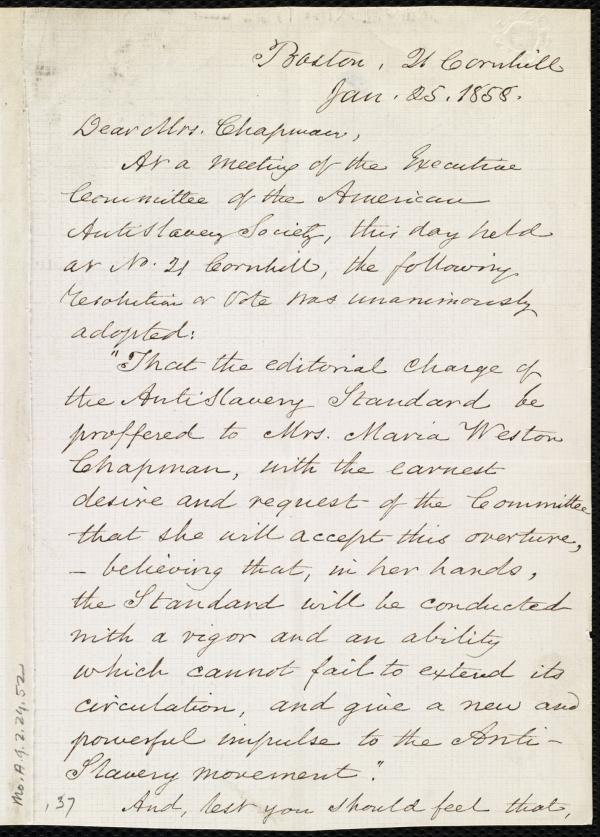 Boston, 21 Cornhill
Jan. 25. 1858.
Dear Mrs. Chapman,
At a meeting of the Executive
Committee of the American
AntiSlavery Society, this day held
at No. 21 Cornhill, the following
resolution or Vote was unanimously
adopted:
"That the editorial charge of
the AntiSlavery Standard be
proffered to Mrs. Maria Weston
Chapman, with the earnest
desire and request of the Committee
that she will accept this overture,
- believing that, in her hands,
the Standard will be conducted
with a vigor and an ability
which cannot fail to extend its
circulation, and give a new and
powerful impulse to the Anti-
Slavery movement".
And, lest you should feel that,
Ms. A.9.2.29.52
,37